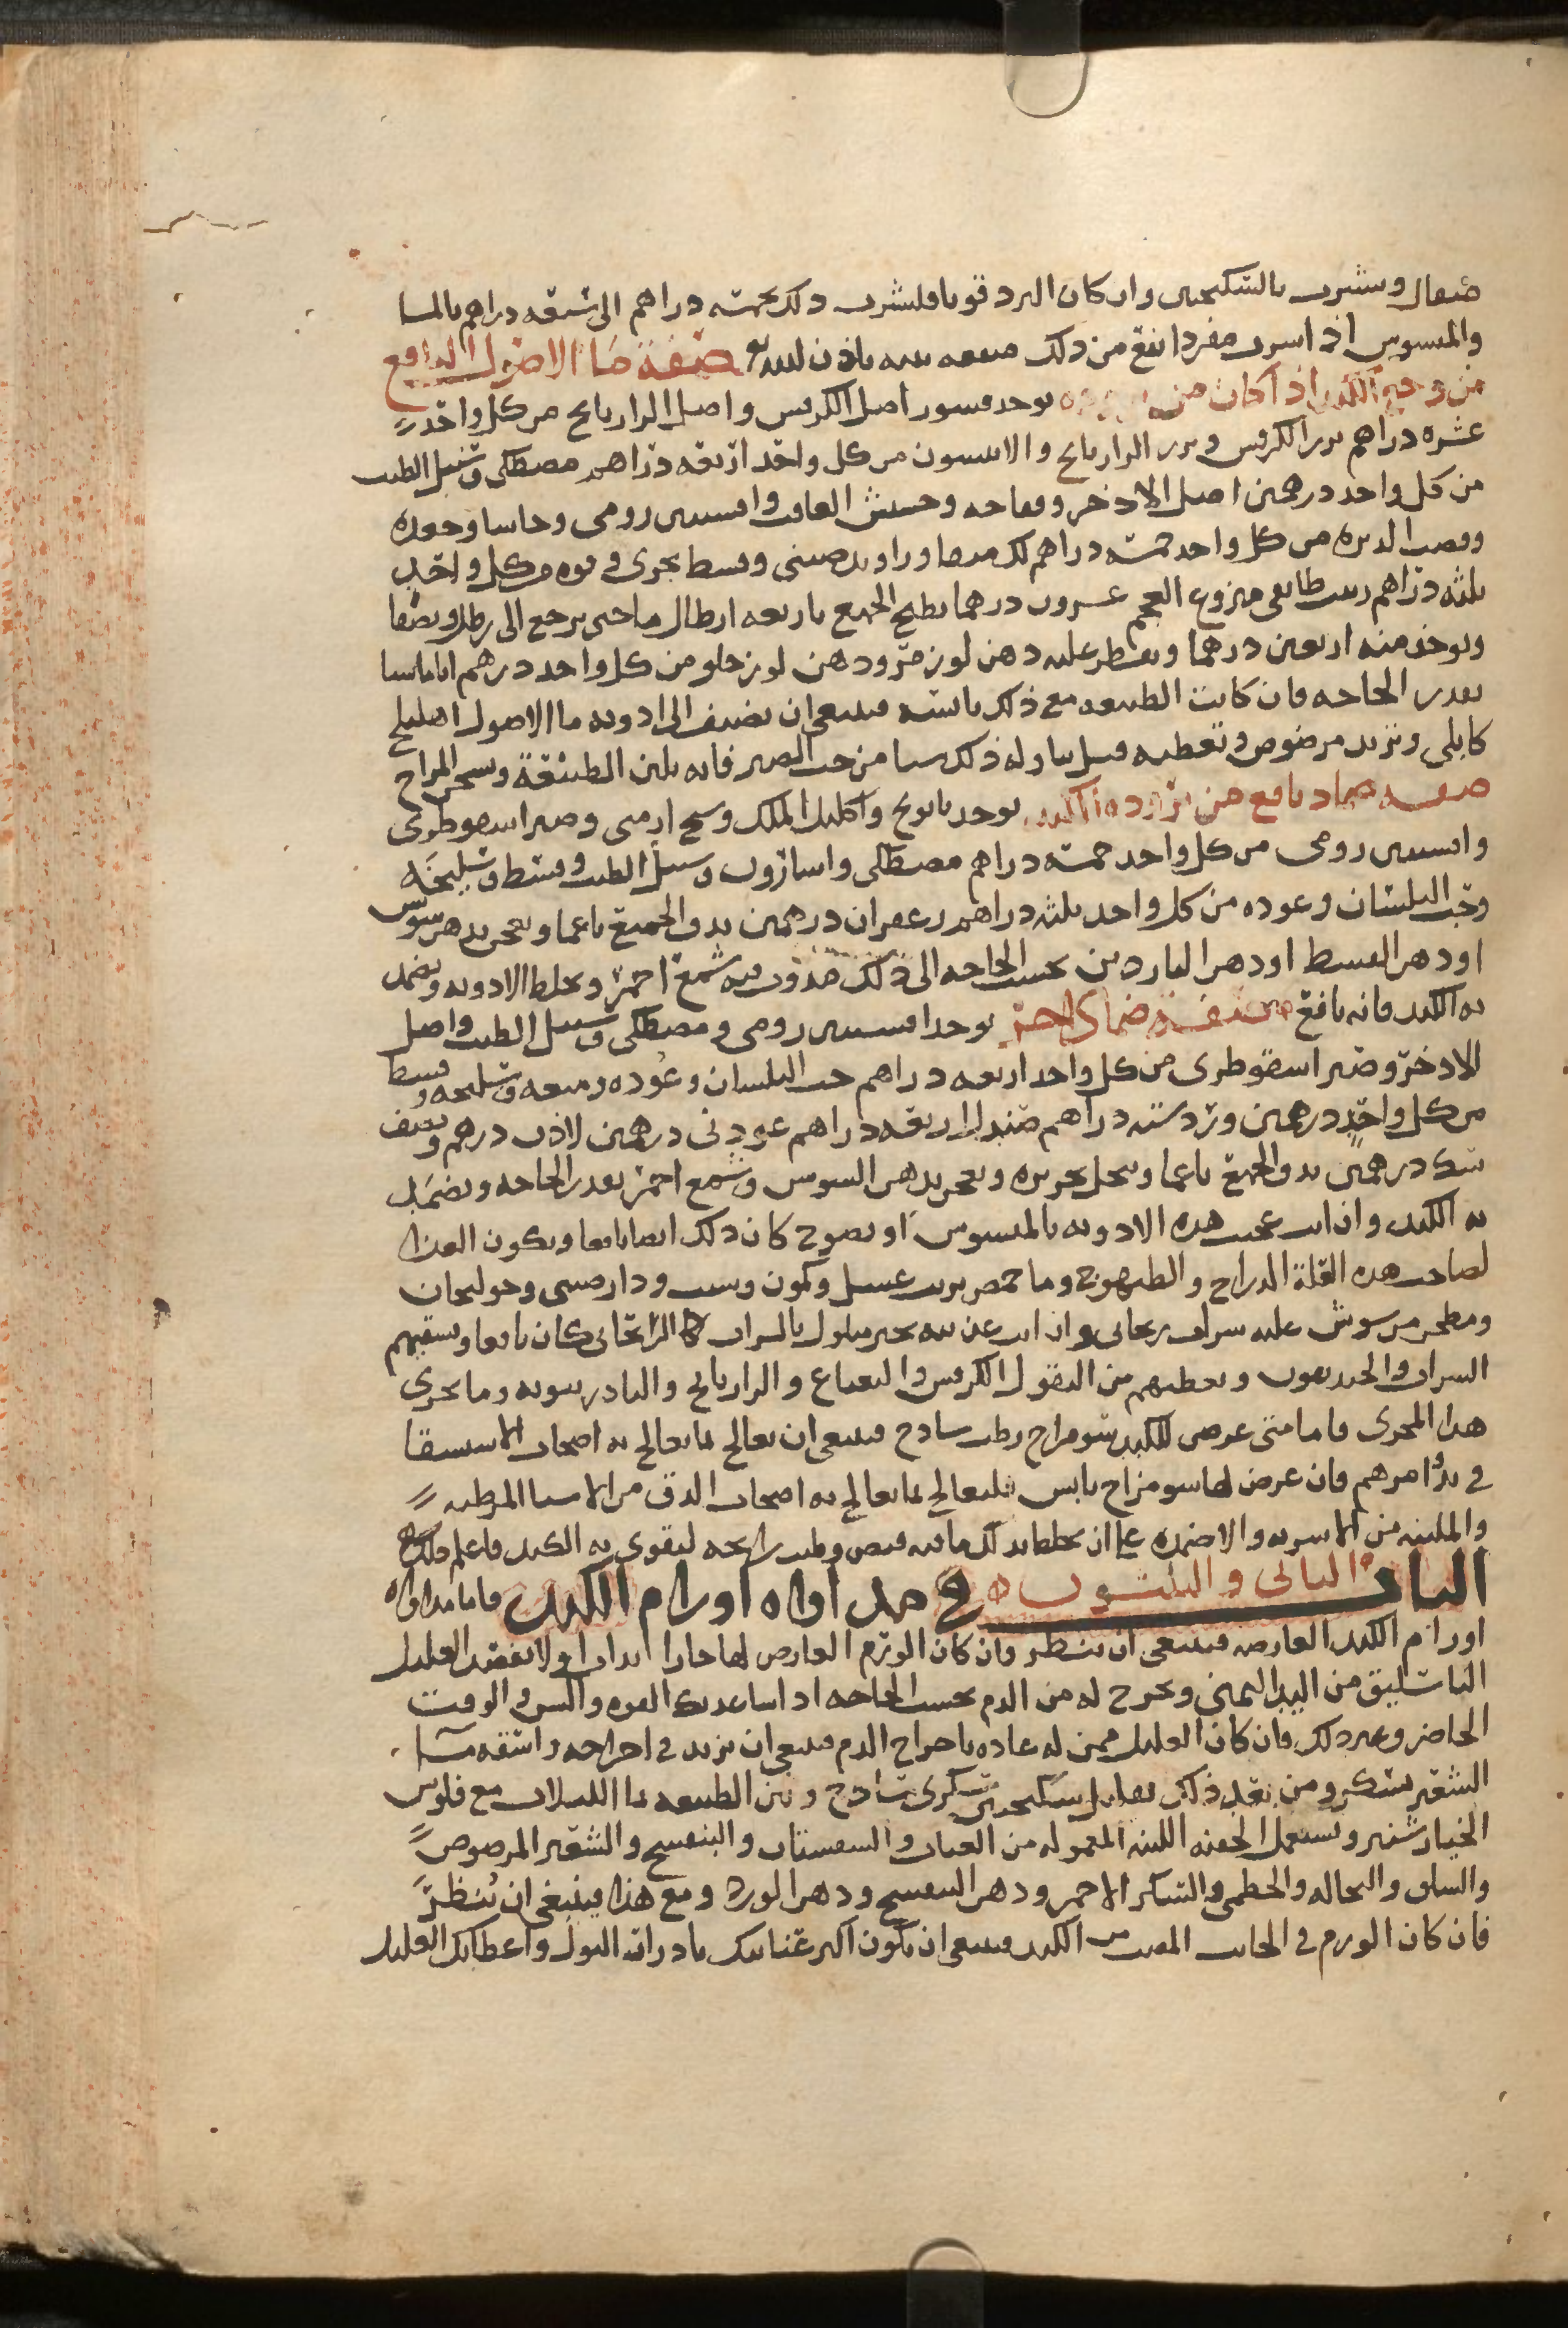 مثقال ويشرب بالسكنجبين وان كان البرد قويا فليشرب ذلك بخمسة دراهم الى سبعه دراهم بالما
والميسوس اذا شرب مفردا نفع من ذلك منفعه بينه باذن الله تع صفة ما الاصول النافع
من وجع الكبد اذا كان من بروده يوخذ قشور اصل الكرفس واصل الرازيانج من كل واحد
عشره دراهم بزر الكرفس وبزر الرازيانج والانيسون من كل واحد اربعه دراهم مصطكى وسنبل الطيب
من كل واحد درهمين اصل الاذخر وفقاحه وحشيش الغافت وافسنتين رومي وحاشا وجعده
وقصب الذريره من كل واحد خمسة دراهم لك منقا وراوند صيني وقسط بحري وفوه من كل واحد
ثلثه دراهم زبيب طايفي منزوع العجم عشرون درهما يطبخ الجميع باربعه ارطال ما حتى يرجع الى رطل ونصف
ويوخذ منه اربعين درهما ويقطر عليه دهن لوز مر ودهن لوز حلو من كل واحد درهم اياما
بقدر الحاجه فان كانت الطبيعه مع ذلك يابسه فينبغي ان يضيف الى ادويه ما الاصول اهليلج
كابلي وتربد مرضوض وتعطيه قبل تناوله ذلك شيا من حب الصبر فانه يلين الطبيعة ويسخن المزاج
صفه ضماد نافع من بروده الكبد يوخذ بابونج واكليل الملك وشيح ارمني وصبر اسقوطري
وافسنتين رومي من كل واحد خمسة دراهم مصطكى واسارون وسنبل الطيب وقسط وسليخه
وحب البلسان وعوده من كل واحد ثلثه دراهم زعفران درهمين يدق الجميع ناعما ويعجن بدهن سوسن
او دهن القسط او دهن الناردين بحسب الحاجه الى ذلك مذوب فيه شمع احمر ويخلط الادويه ويضمد
به الكبد فانه نافع صفة ضماد اخر يوخذ افسنتين رومي ومصطكى وسنبل الطيب واصل
الاذخر وصبر اسقوطري من كل واحد اربعه دراهم حب البلسان وعوده وميعه وسليخه وقسط
من كل واحد درهمين ورد سته دراهم صندل اربعه دراهم عود ني درهمين لاذن درهم ونصف
سك درهمين يدق الجميع ناعما وينخل بحريره ويعجن بدهن السوسن وشمع احمر بقدر الحاجه ويضمد
به الكبد وان انت عجنت هذه الادويه بالميسوس او بنضوح كان ذلك ايضا نافعا ويكون الغذا
لصاحب هذه العلة الدراج والطيهوج وما حمص بزيت غسيل وكمون وشبث ودارصيني وخولنجان
ومطجن مرشوش عليه شراب ريحاني وان انت غذيته بخبز مبلول بالشراب الريحاني كان نافعا وتسقيهم
الشراب والخنديقون وتعطيهم من البقول الكرفس والنعناع والرازيانج والبادرنبويه وما يجري
هذا المجرى فاما متى عرض للكبد سو مزاج رطب ساذج فينبغي ان تعالج بما يعالج به اصحاب الاستسقا
في بدو امرهم فان عرض لها سو مزاج يابس فليعالج بما يعالج به اصحاب الدق من الاشيا المرطبه
والملينه من الاشربه والاضمده على ان يخلط بذلك ما فيه قبض وطيب رايحه ليقوى به الكبد فاعلم ذلك
الباب الثاني والثلثون في مداواه اورام الكبد فاما مداواه
اورام الكبد العارضه فينبغي ان تنظر فان كان الورم العارض لها حارا ابدات اولا بفصد العليل
الباسليق من اليد اليمنى وتخرج له من الدم بحسب الحاجه اذا ساعدتك القوه والسن والوقت
الحاضر وغير ذلك فان كان العليل ممن له عاده باخراج الدم فينبغي ان تزيد في اخراجه واسقه ما
الشعير بسكر ومن بعد ذلك سكنجبين سكري ساذج ولين الطبيعه بما اللبلاب مع فلوس
الخيارشنبر وتستعمل الحقنه اللينه المعموله من العناب والسبستان والبنفسج والشعير المرضوض
والسلق والنخاله والخطمي والسكر الاحمر ودهن البنفسج ودهن الورد ومع هذا فينبغي ان تنظر
فان كان الورم في الجانب المقبب من الكبد فينبغي ان يكون اكثر عنايتك بادرار البول واعطايك العليل